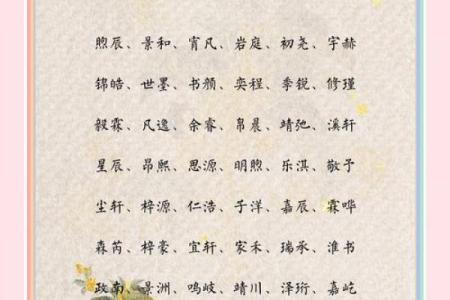 煦辰、景和、宵凡、岩庭、初尧、宇赫
锦皓、世墨、书颜、奕程、季锐、修瑾
毅霖、凡逸、余睿、帛晨、靖弛、溪轩
星辰、昂熙、思源、明煦、乐淇、敬予
尘轩、梓源、仁浩、子洋、嘉辰、霖哗
森芮、梓豪、宜轩、家禾、瑞承、淮书
政南、景洲、鸣岐、靖川、泽珩、嘉屹